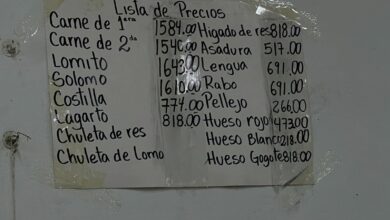 Lista de Precios
Carne de 1era 1584.00 Higado de res 818.00
Carne de 2da 1540.00 Asadura 517.00
Lomito 1643.00 Lengua 691.00
Solomo 1610.00 Rabo 691.00
Costilla 774.00 Pellejo 266.00
Lagarto 818.00 Hueso rojo 473.00
Chuleta de res Hueso Blanco 218.00
Chuleta de Lomo Hueso Gogote 818.00